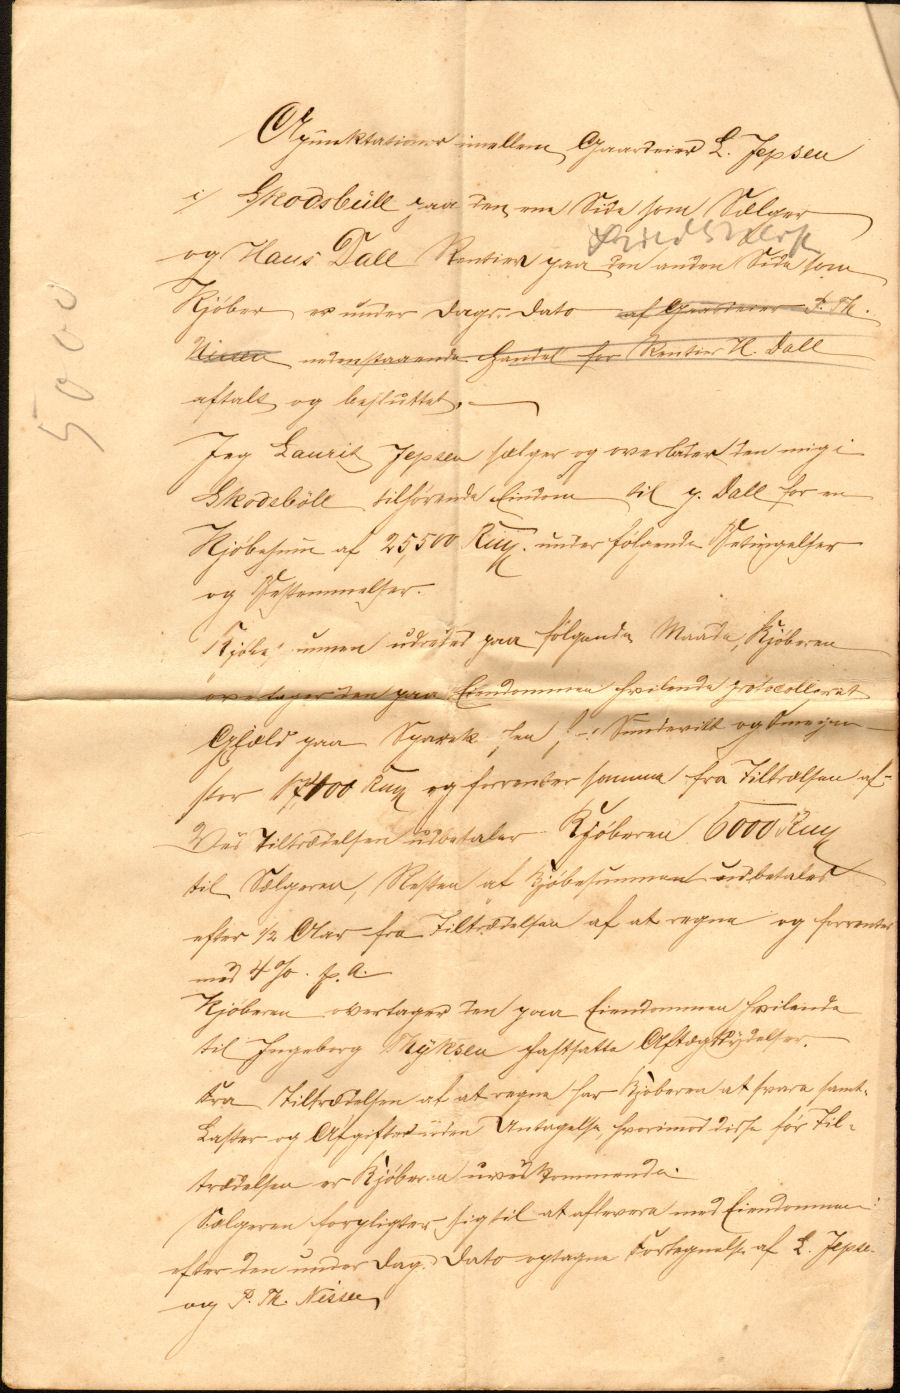 Apunktation imellem Gaardeier L. Jepsen
i Skodsbüll paa den ene Side som Sælger
og Hans Dall Rentier paa den anden Side som
Kjöber er under Dags Dato af Gaardeier P. Th.
Nissen nedenstaaende Handel for Rentier H. Dall
aftalt og besluttet.
5000
Jeg Laurit Jepsen sælger og overlader den mig i
Skodsböll tilhörende Eindom til p. Dall for en
Kjöbesum af 25,500 Rmk. under fölgende Betingelser
og Bestemmelser.
udredes paa fölgende Maade, Kjöberen
overtager den paa Eiendommen hvilende protocolleret
Gjæld paa Sundevitt og Omegn
stor Rmk og forrenter samme fra Tiltrælsen af
Ved Tiltrædelsen udbetaler Kjöberen 6000 Rmk
til Sælgeren, Resten af Kjöbesummen udbetales
efter 1/2 Aar fra Tiltrædelsen af at regne og forrentes
med 4 %. p. a.
Kjöberen overtager den paa Eiendommen hvilende
til Ingeborg Thyksen fastsatte Aftægtsydelser.
Fra Tiltrædelsen af at regne har Kjöberen at svare samt.
Laster og Afgifter uden Untagelse, hvorimod disse för Til-
trædelsen er Kjöberen uvedkommende.
Sælgeren forpligter sig til at aflevere med Eiendommen
efter den under Dags Dato optagne Fortegnelse af L. Jepse
og P. Th. Nissen